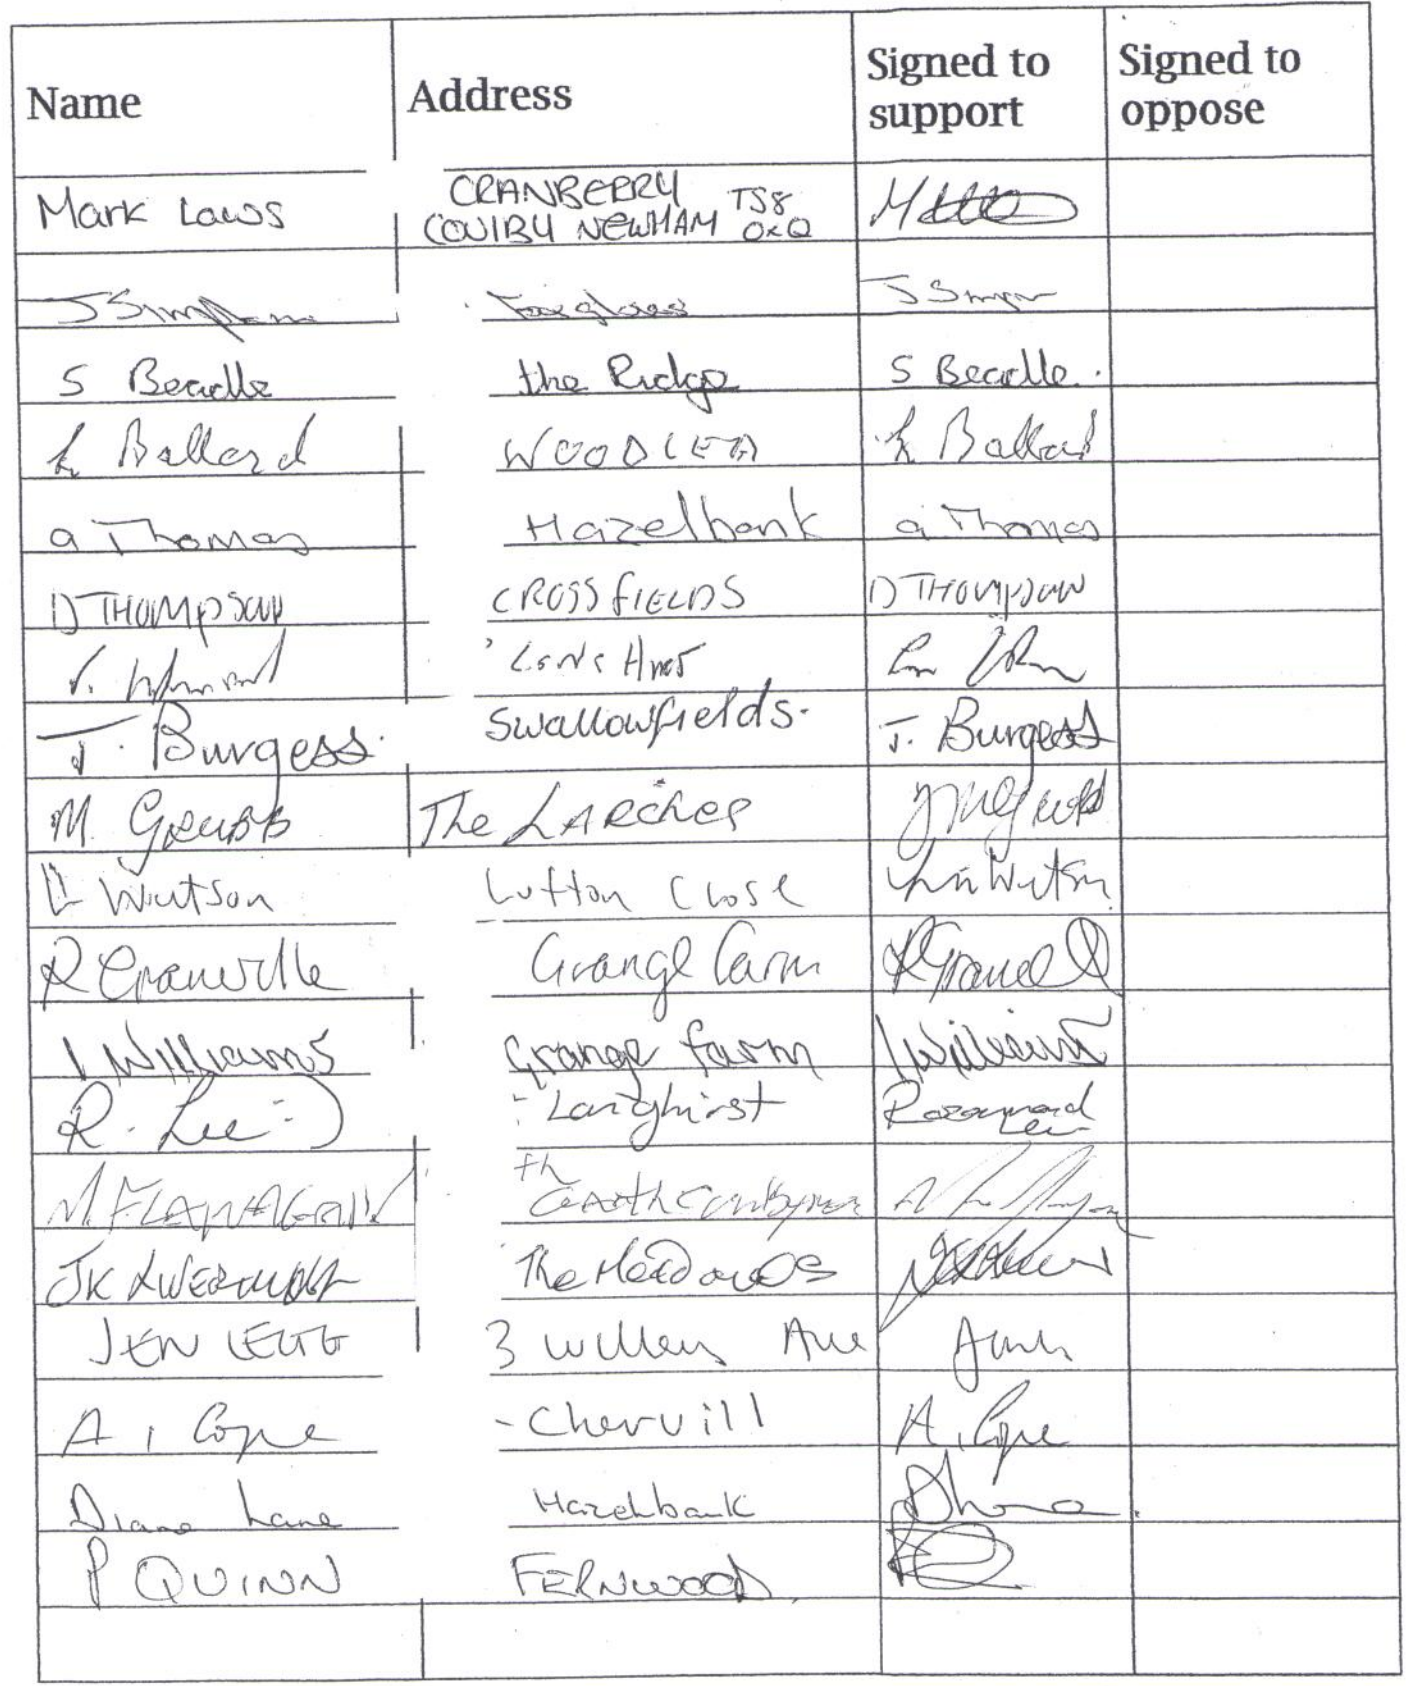 Name Address Signed to support Signed to oppose
Mark Laws CRANBERRY TS8
COULBY NEWHAM 0XQ
J Simpson Foxgloves J Simpson
S Beadle the Ridge S Beadle.
L Ballard WOODLEA L Ballard
a Thomas Hazelbank a Thomas
D THOMPSON CROSSFIELDS D THOMPSON
J. Burgess. Swallowfields. J. Burgess
M. GRUBB The LARCHES
L Watson Lufton Close
R Granville Grange Farm
I WILLIAMS Grange farm I Williams
R. Lee :) Langhirst Rosamond Lee
M. FLANAGAN The Garth
JK The Meadows
JEN LEGG 3 Ave
A. Cope - Chervill A. Cope
Diane Lane Hazelbank
P QUINN FERNWOOD